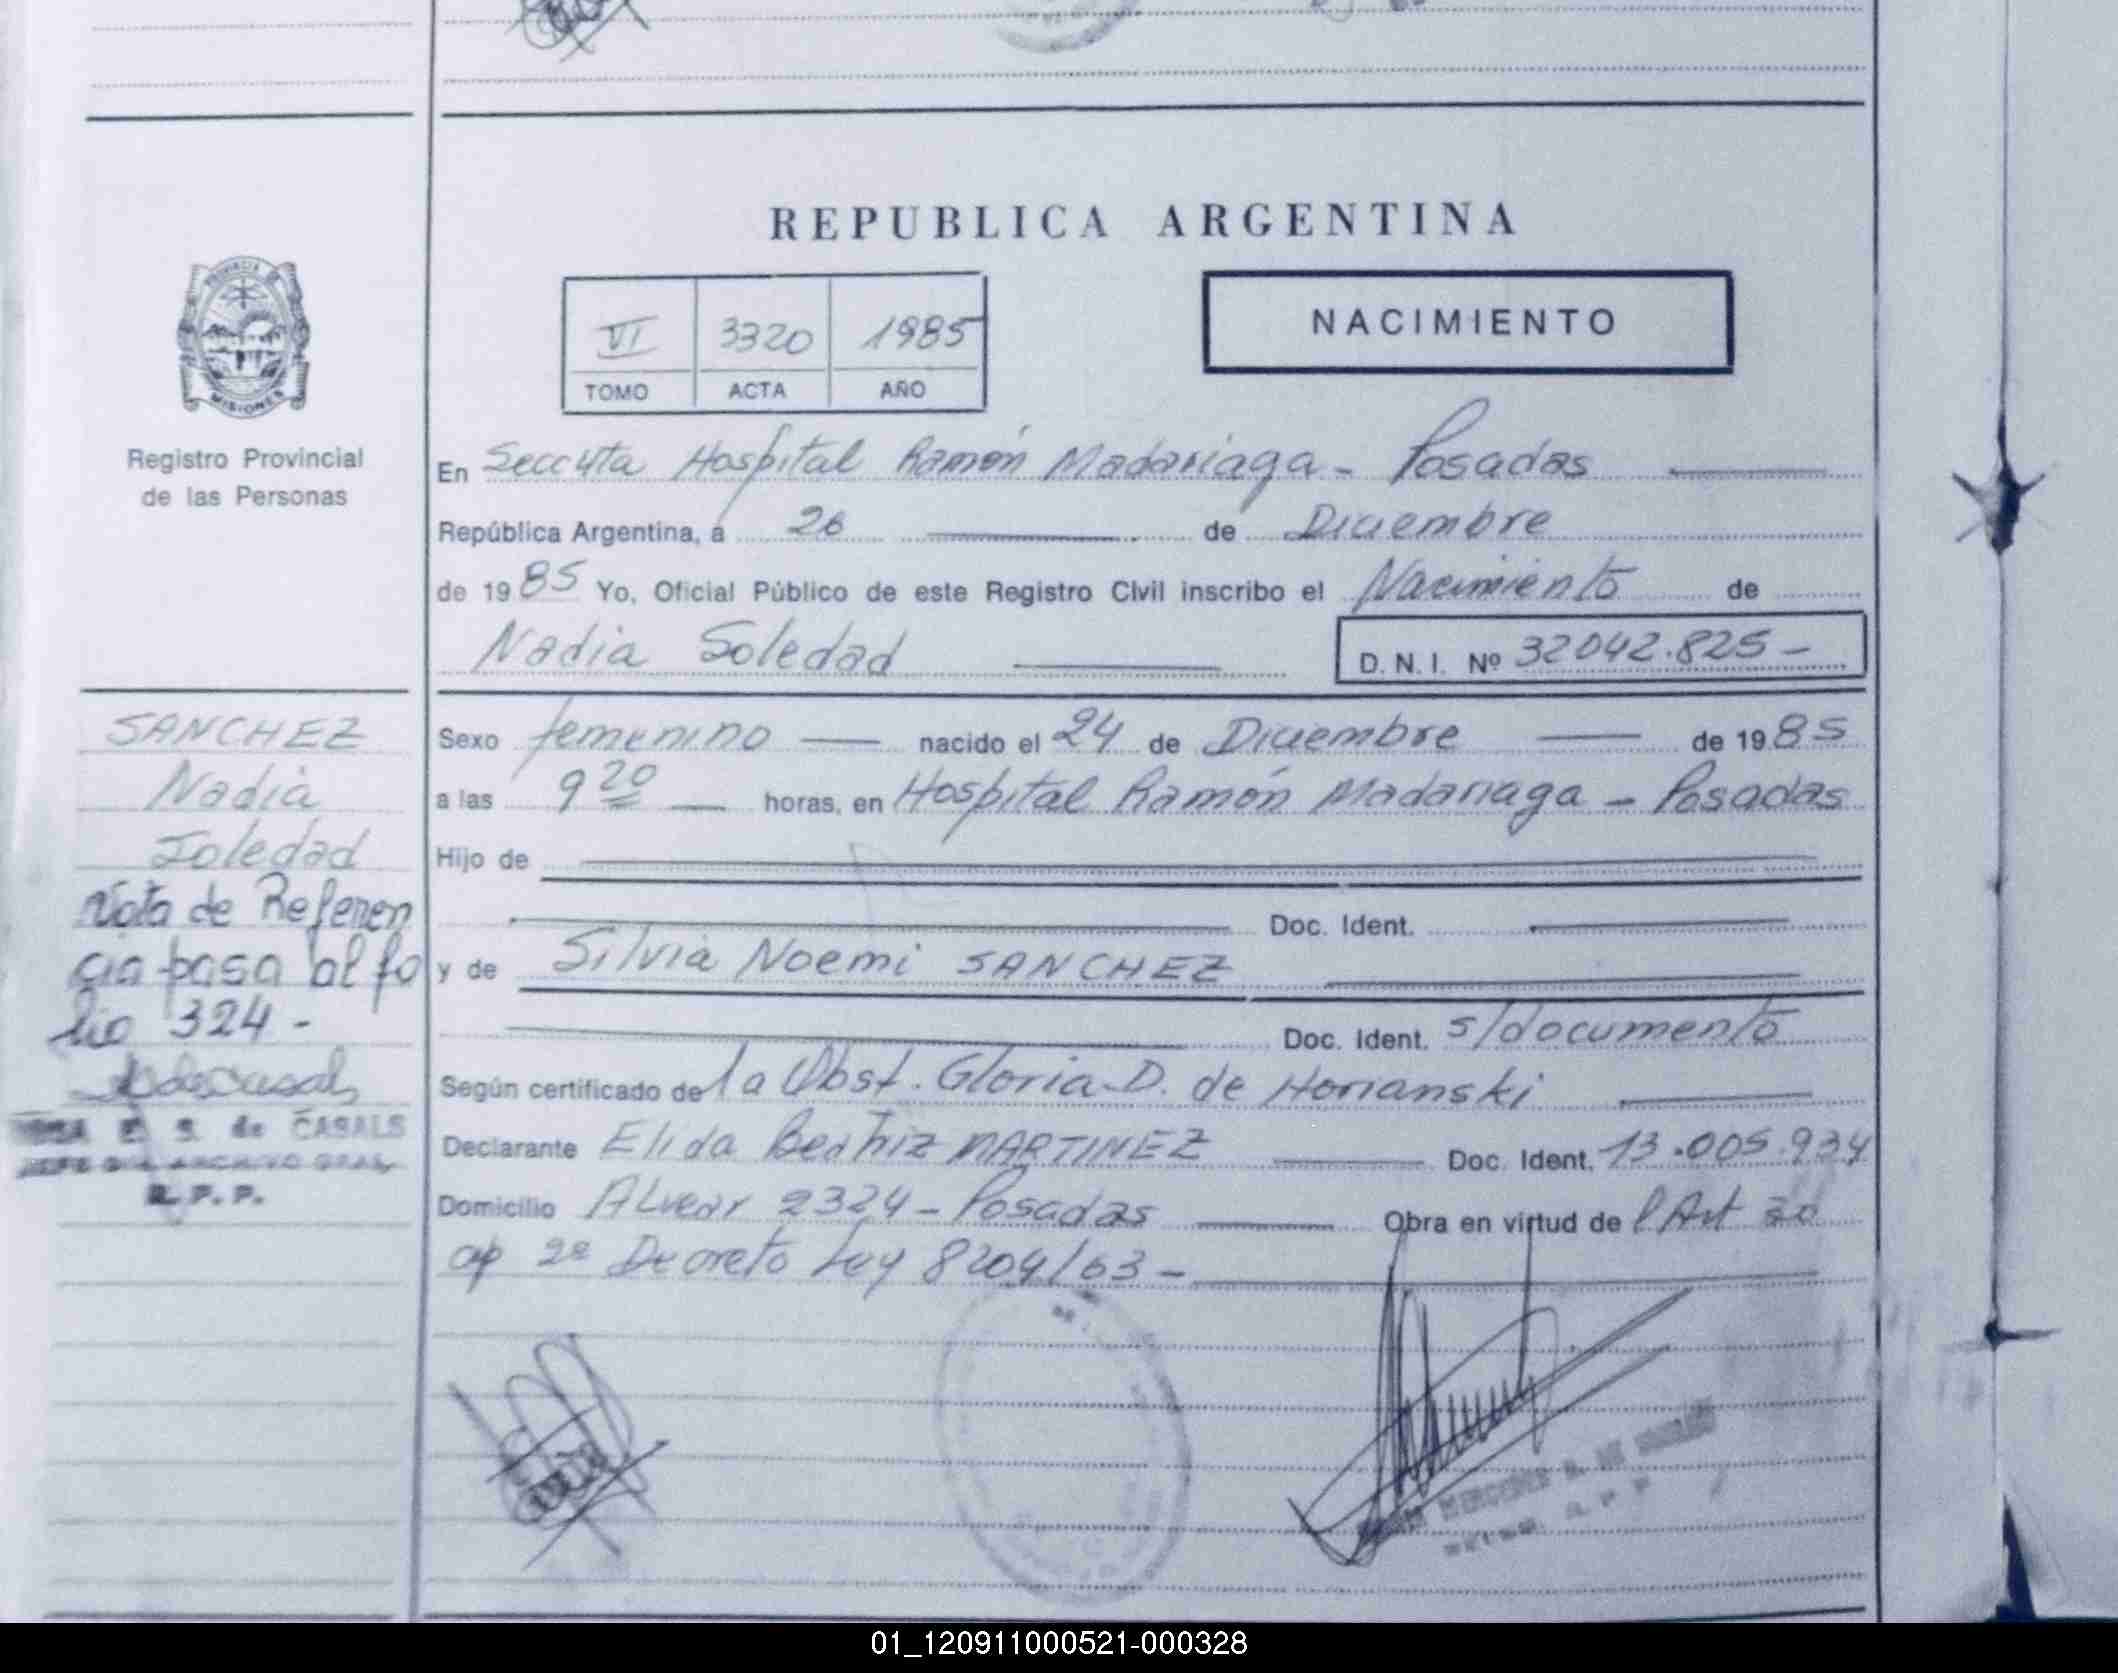 REPUBLICA ARGENTINA
PROVINCIA DE
MISIONES
Registro Provincial
de las Personas
VI 3320 1985
TOMO ACTA AÑO
NACIMIENTO
En Seccuta Hospital Ramón Madariaga - Posadas
República Argentina, a 26 de Diciembre
de 1985 Yo, Oficial Público de este Registro Civil inscribo el Nacimiento de
Nadia Soledad D. N. I. Nº 32042.825-
SANCHEZ
Nadia
Soledad
Nota de Referen
cia pasa al fo
lio 324 -
E. S. de CASALS
JEFE ARCHIVO GRAL.
R. P. P.
Sexo femenino nacido el 24 de Diciembre de 1985
a las 9 20 horas, en Hospital Ramón Madariaga - Posadas
Hijo de
Doc. Ident.
y de Silvia Noemi SANCHEZ
Doc. Ident. s/documento
Según certificado de la Obst. Gloria D. de Horianski
Declarante Elida Beatriz MARTINEZ Doc. Ident. 13.005.934
Domicilio Alvear 2324 - Posadas Obra en virtud de l Art 30
ap 2º Decreto Ley 8204/63 -
01_120911000521-000328